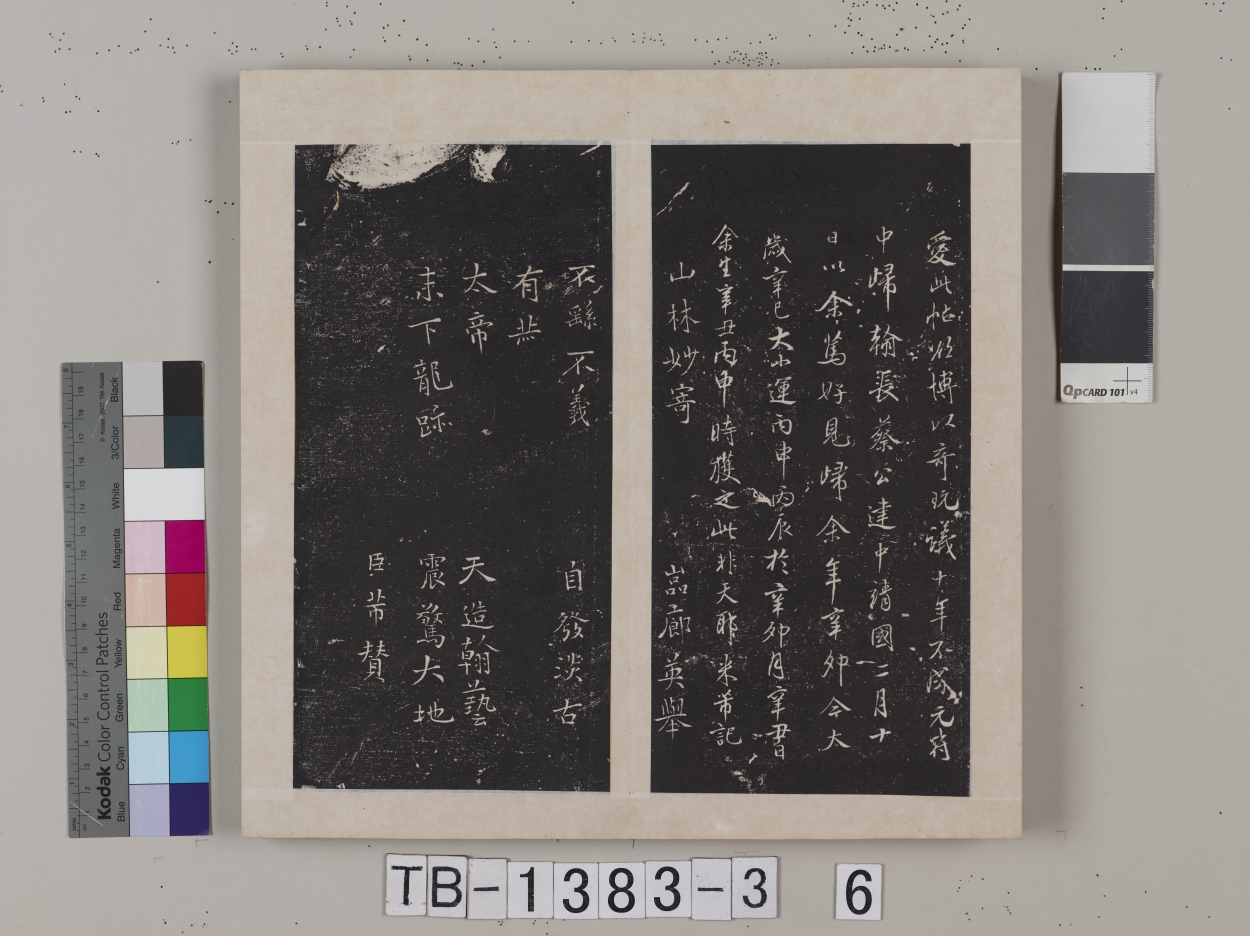 愛此帖欲博以奇玩議十年不成元符
中歸翰長蔡公建中靖國二月十
日以余篤好見歸余年辛卯今太
歲辛巳大小運丙申丙辰於辛卯月辛書
余生辛丑丙申時獲之此非天耶米芾記
山林妙寄
嵓廊英舉
不繇不義
自發淡古
有芾
太帝
天造翰藝
末下龍跡
震驚大地
臣芾贊
TB-1383-3 6
QPCARD 101 v4
Kodak Color Control Patches
© Kodak, 2007 TM: Kodak
Blue
Cyan
Green
Yellow
Red
Magenta
White
3/Color
Black